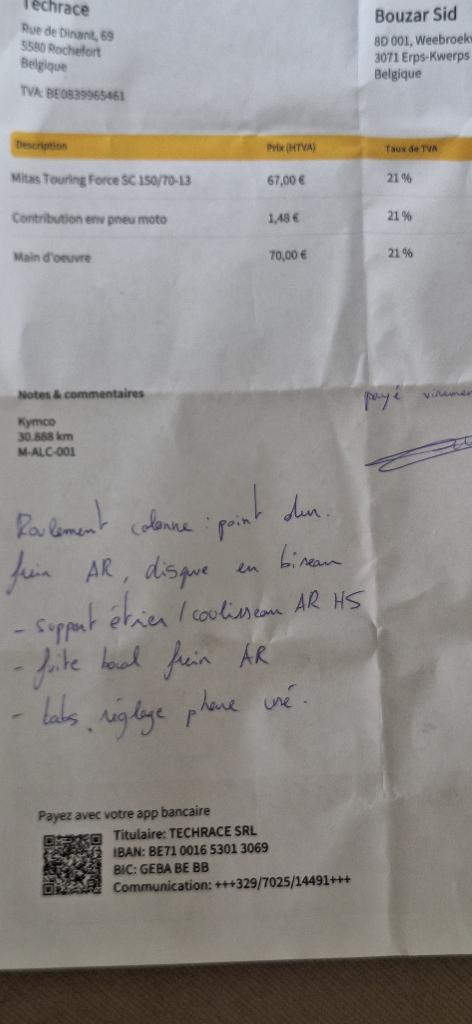 Techrace
Rue de Dinant, 69
5580 Rochefort
Belgique
TVA: BE0839965461
Bouzar Sid
8D 001,
3071 Erps-Kwerps
Belgique
Description Prix (HTVA) Taux de TVA
Mitas Touring Force SC 150/70-13 67,00 € 21 %
Contribution env pneu moto 1,48 € 21 %
Main d'oeuvre 70,00 € 21 %
Notes & commentaires
payé
Kymco
30.888 km
M-ALC-001
Roulement colonne : point dur.
frein AR, disque en biseau
- support étrier / coulisseau AR HS
- fuite bocal frein AR
- réglage phare usé.
Payez avec votre app bancaire
Titulaire: TECHRACE SRL
IBAN: BE71 0016 5301 3069
BIC: GEBA BE BB
Communication: +++329/7025/14491+++